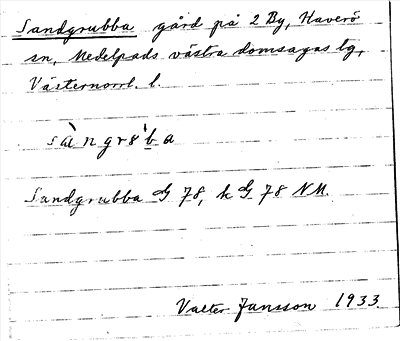 Sandgrubba gård på 2 By, Haverö
sn, Medelpads västra domsagas tg,
Västernorrl. l.
sàngr8̀ba
Sandgrubba G 78, k G 78 NM.
Valter Jansson 1933.